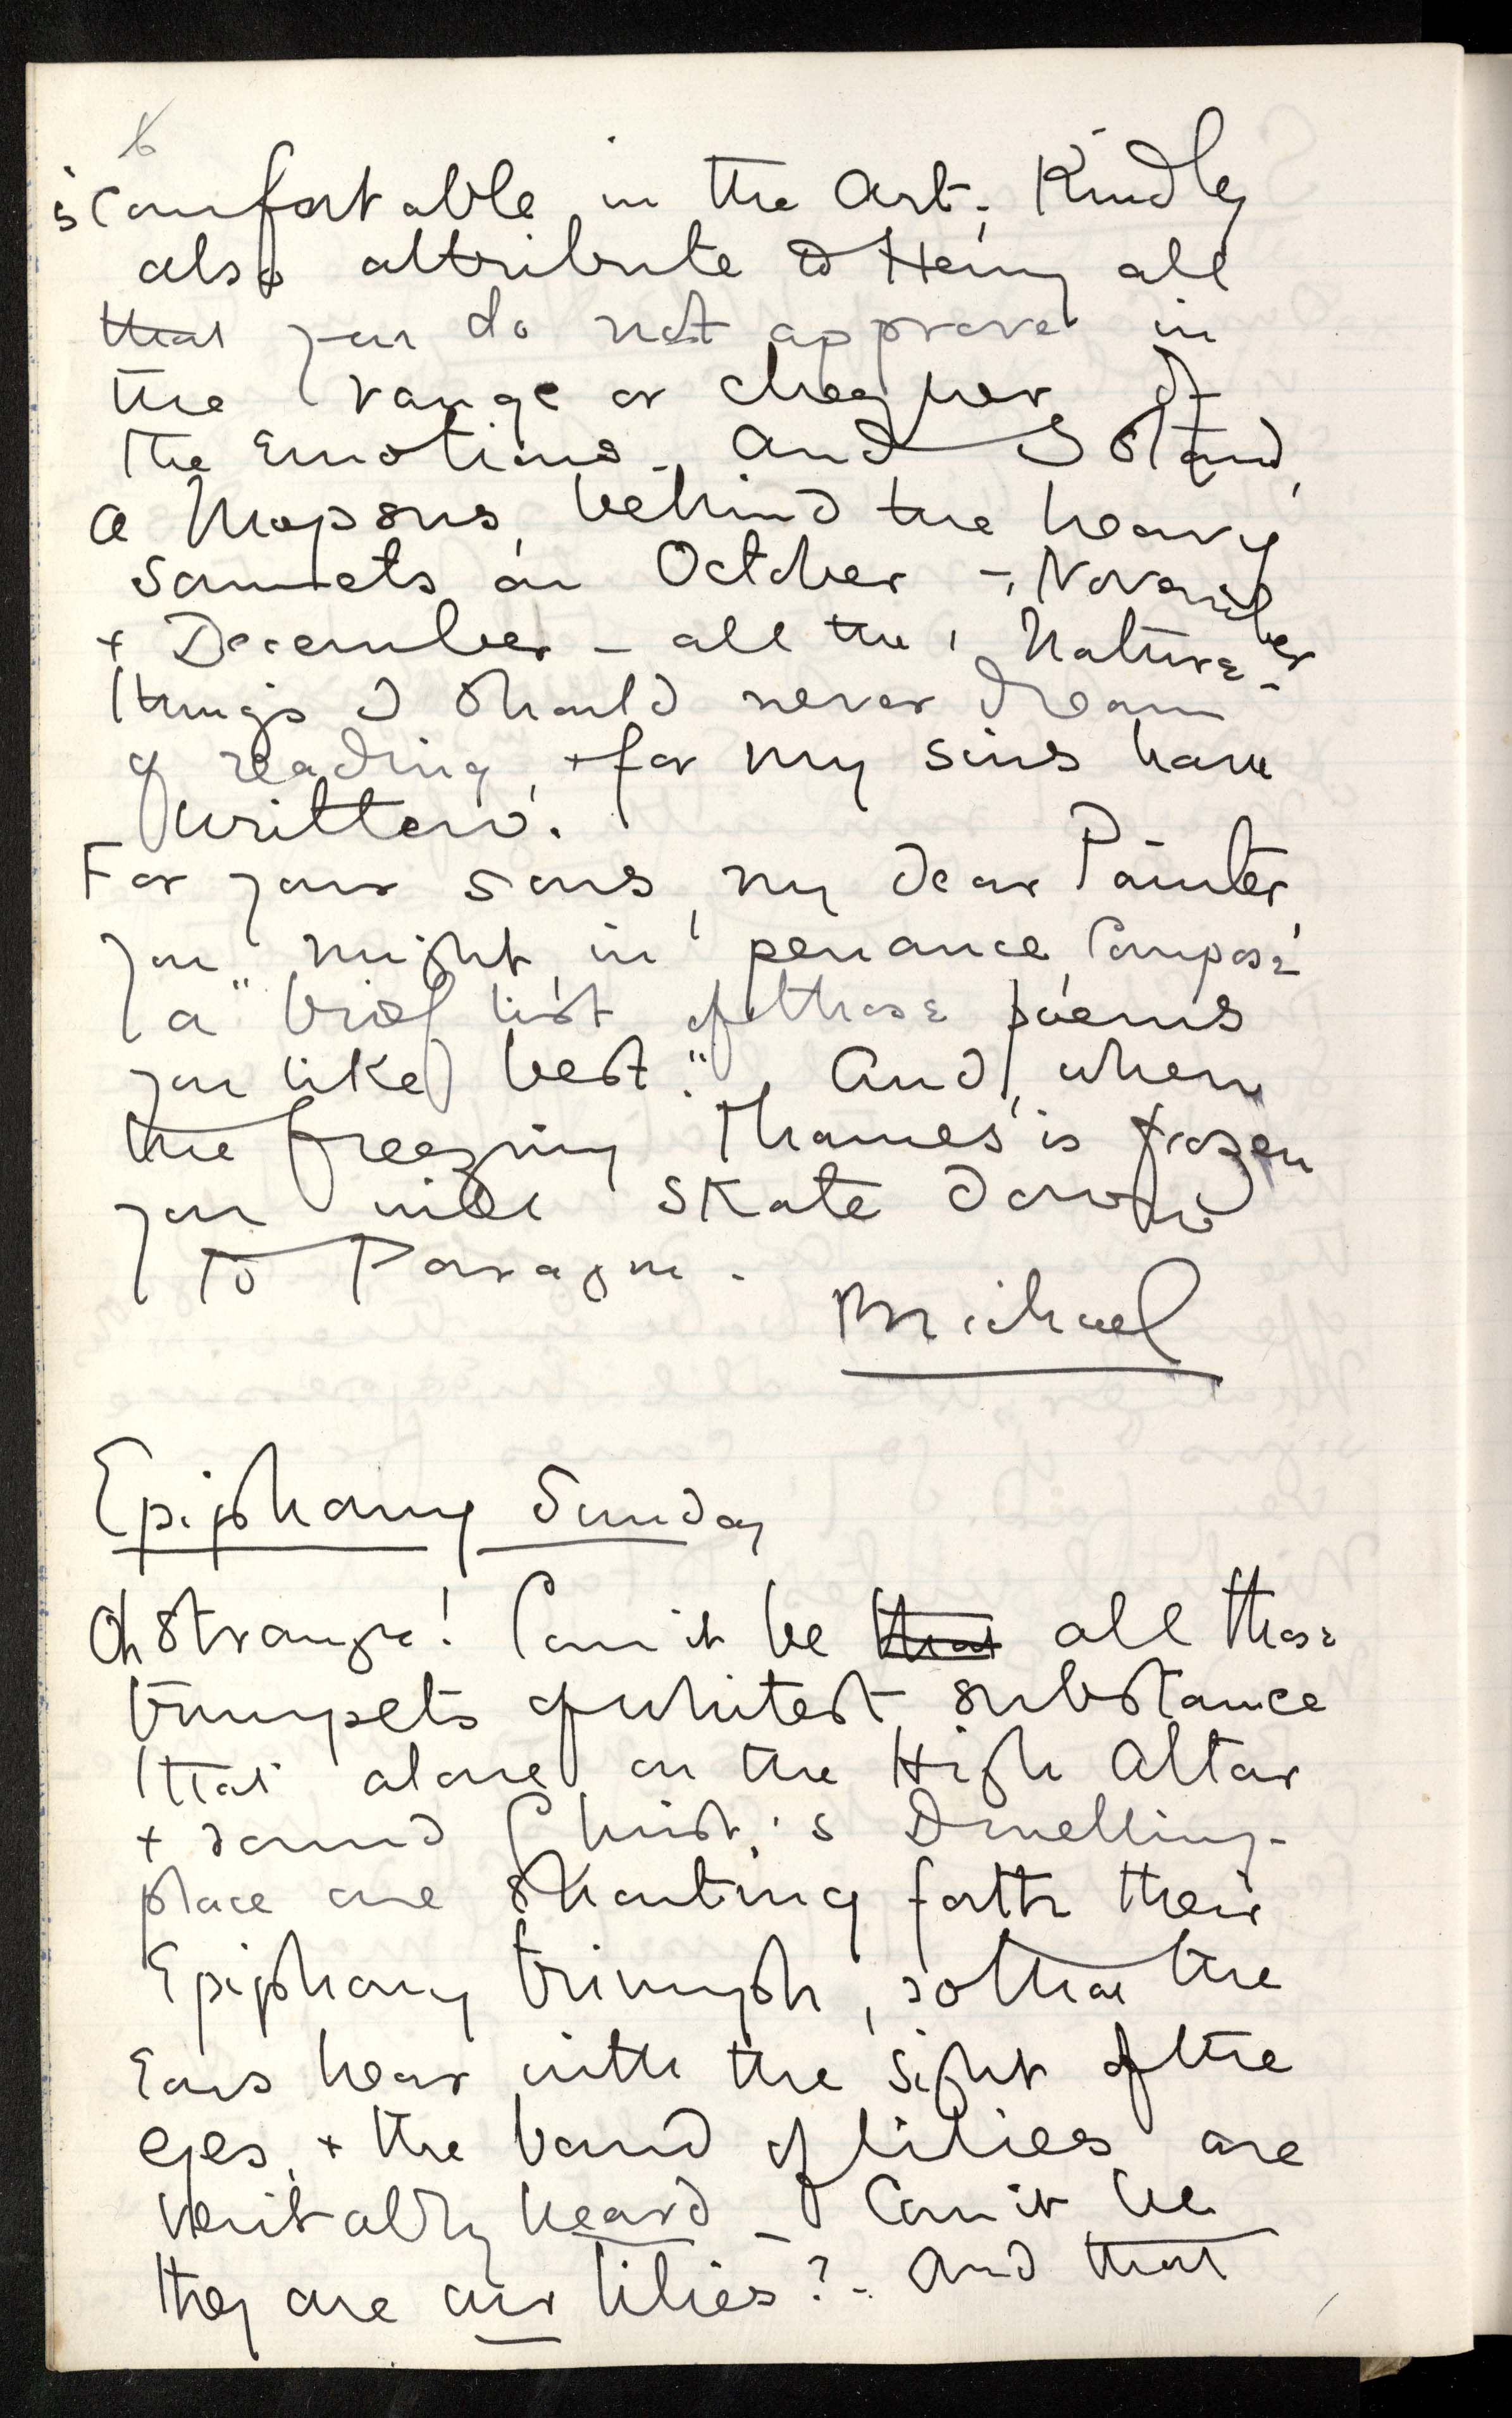 6
is comfortable in the Art. Kindly
also attribute to Henry all
that you do not approve in
the range or chequer of
the Emotions. And I stand,
a Mopsus, behind the heavy
sonnets on October -, November
+ December - all the Nature-
things I should never dream
of reading, + for my sins have
written.
For your sins, my dear Painter,
you might in penance compose
a "brief list of those poems
you like best." And, when
the freezing Thames is frozen
you will skate down
to Paragon.
Michael
Epiphany Sunday
Oh strange! Can it be that all those
trumpets of whitest substance
that alone on the High Altar
+ round Christ's Dwelling-
place are shouting forth their
Epiphany triumph, so that the
Ears hear with the sight of the
eyes, + the band of lilies are
veritably heard - Can it be
they are our lilies? - And that